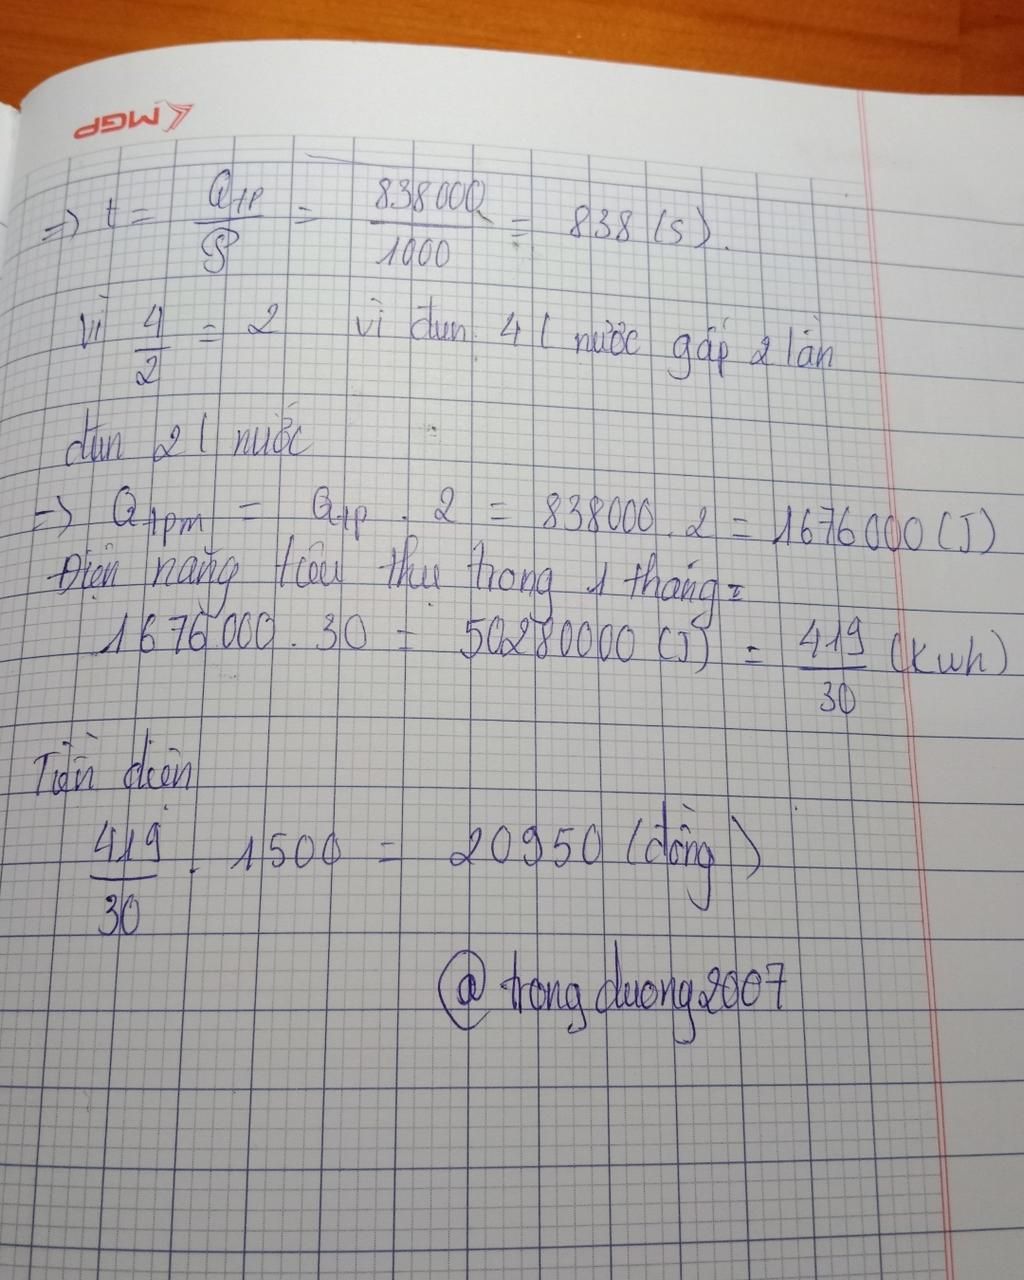 MGP
=> t = Qtp / P = 838000 / 1000 = 838 (s).
Vì 4/2 = 2 vì đun 4l nước gấp 2 lần
đun 2l nước
=> Qtpm = Qtp . 2 = 838000 . 2 = 1676000 (J)
Điện năng tiêu thụ trong 1 tháng =
1676000 . 30 = 50280000 (J) = 419/30 (Kwh)
Tiền điện
419/30 . 1500 = 20950 (đồng)
@trongduong2007